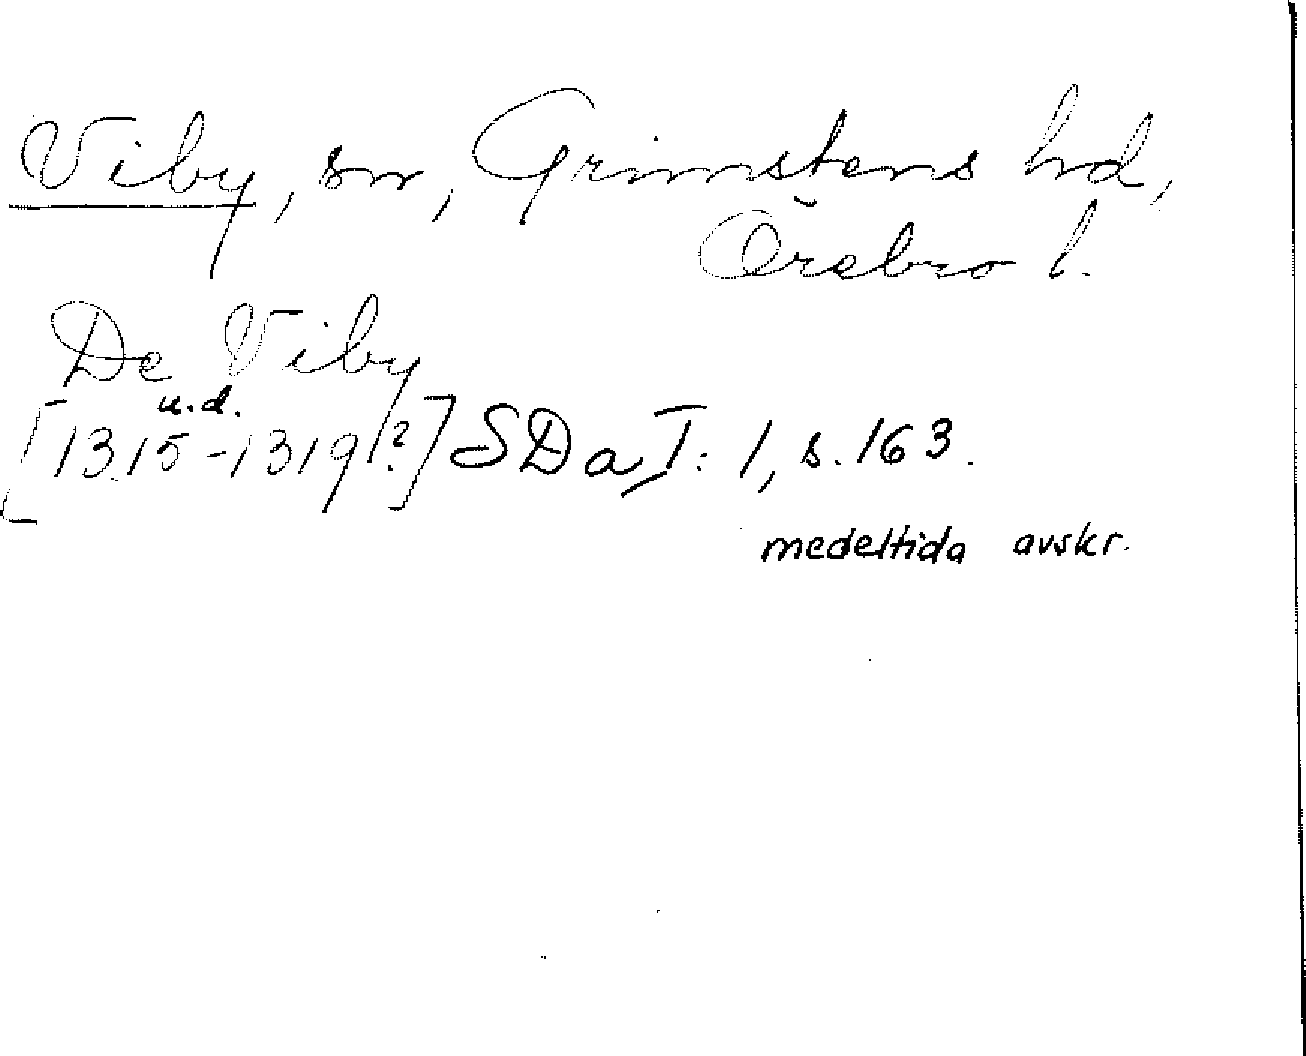 Viby, sn, Grimstens hd,
Örebro l.
De Viby
u.d.
[1315-1319?] SDa I: 1, s. 163.
medeltida avskr.